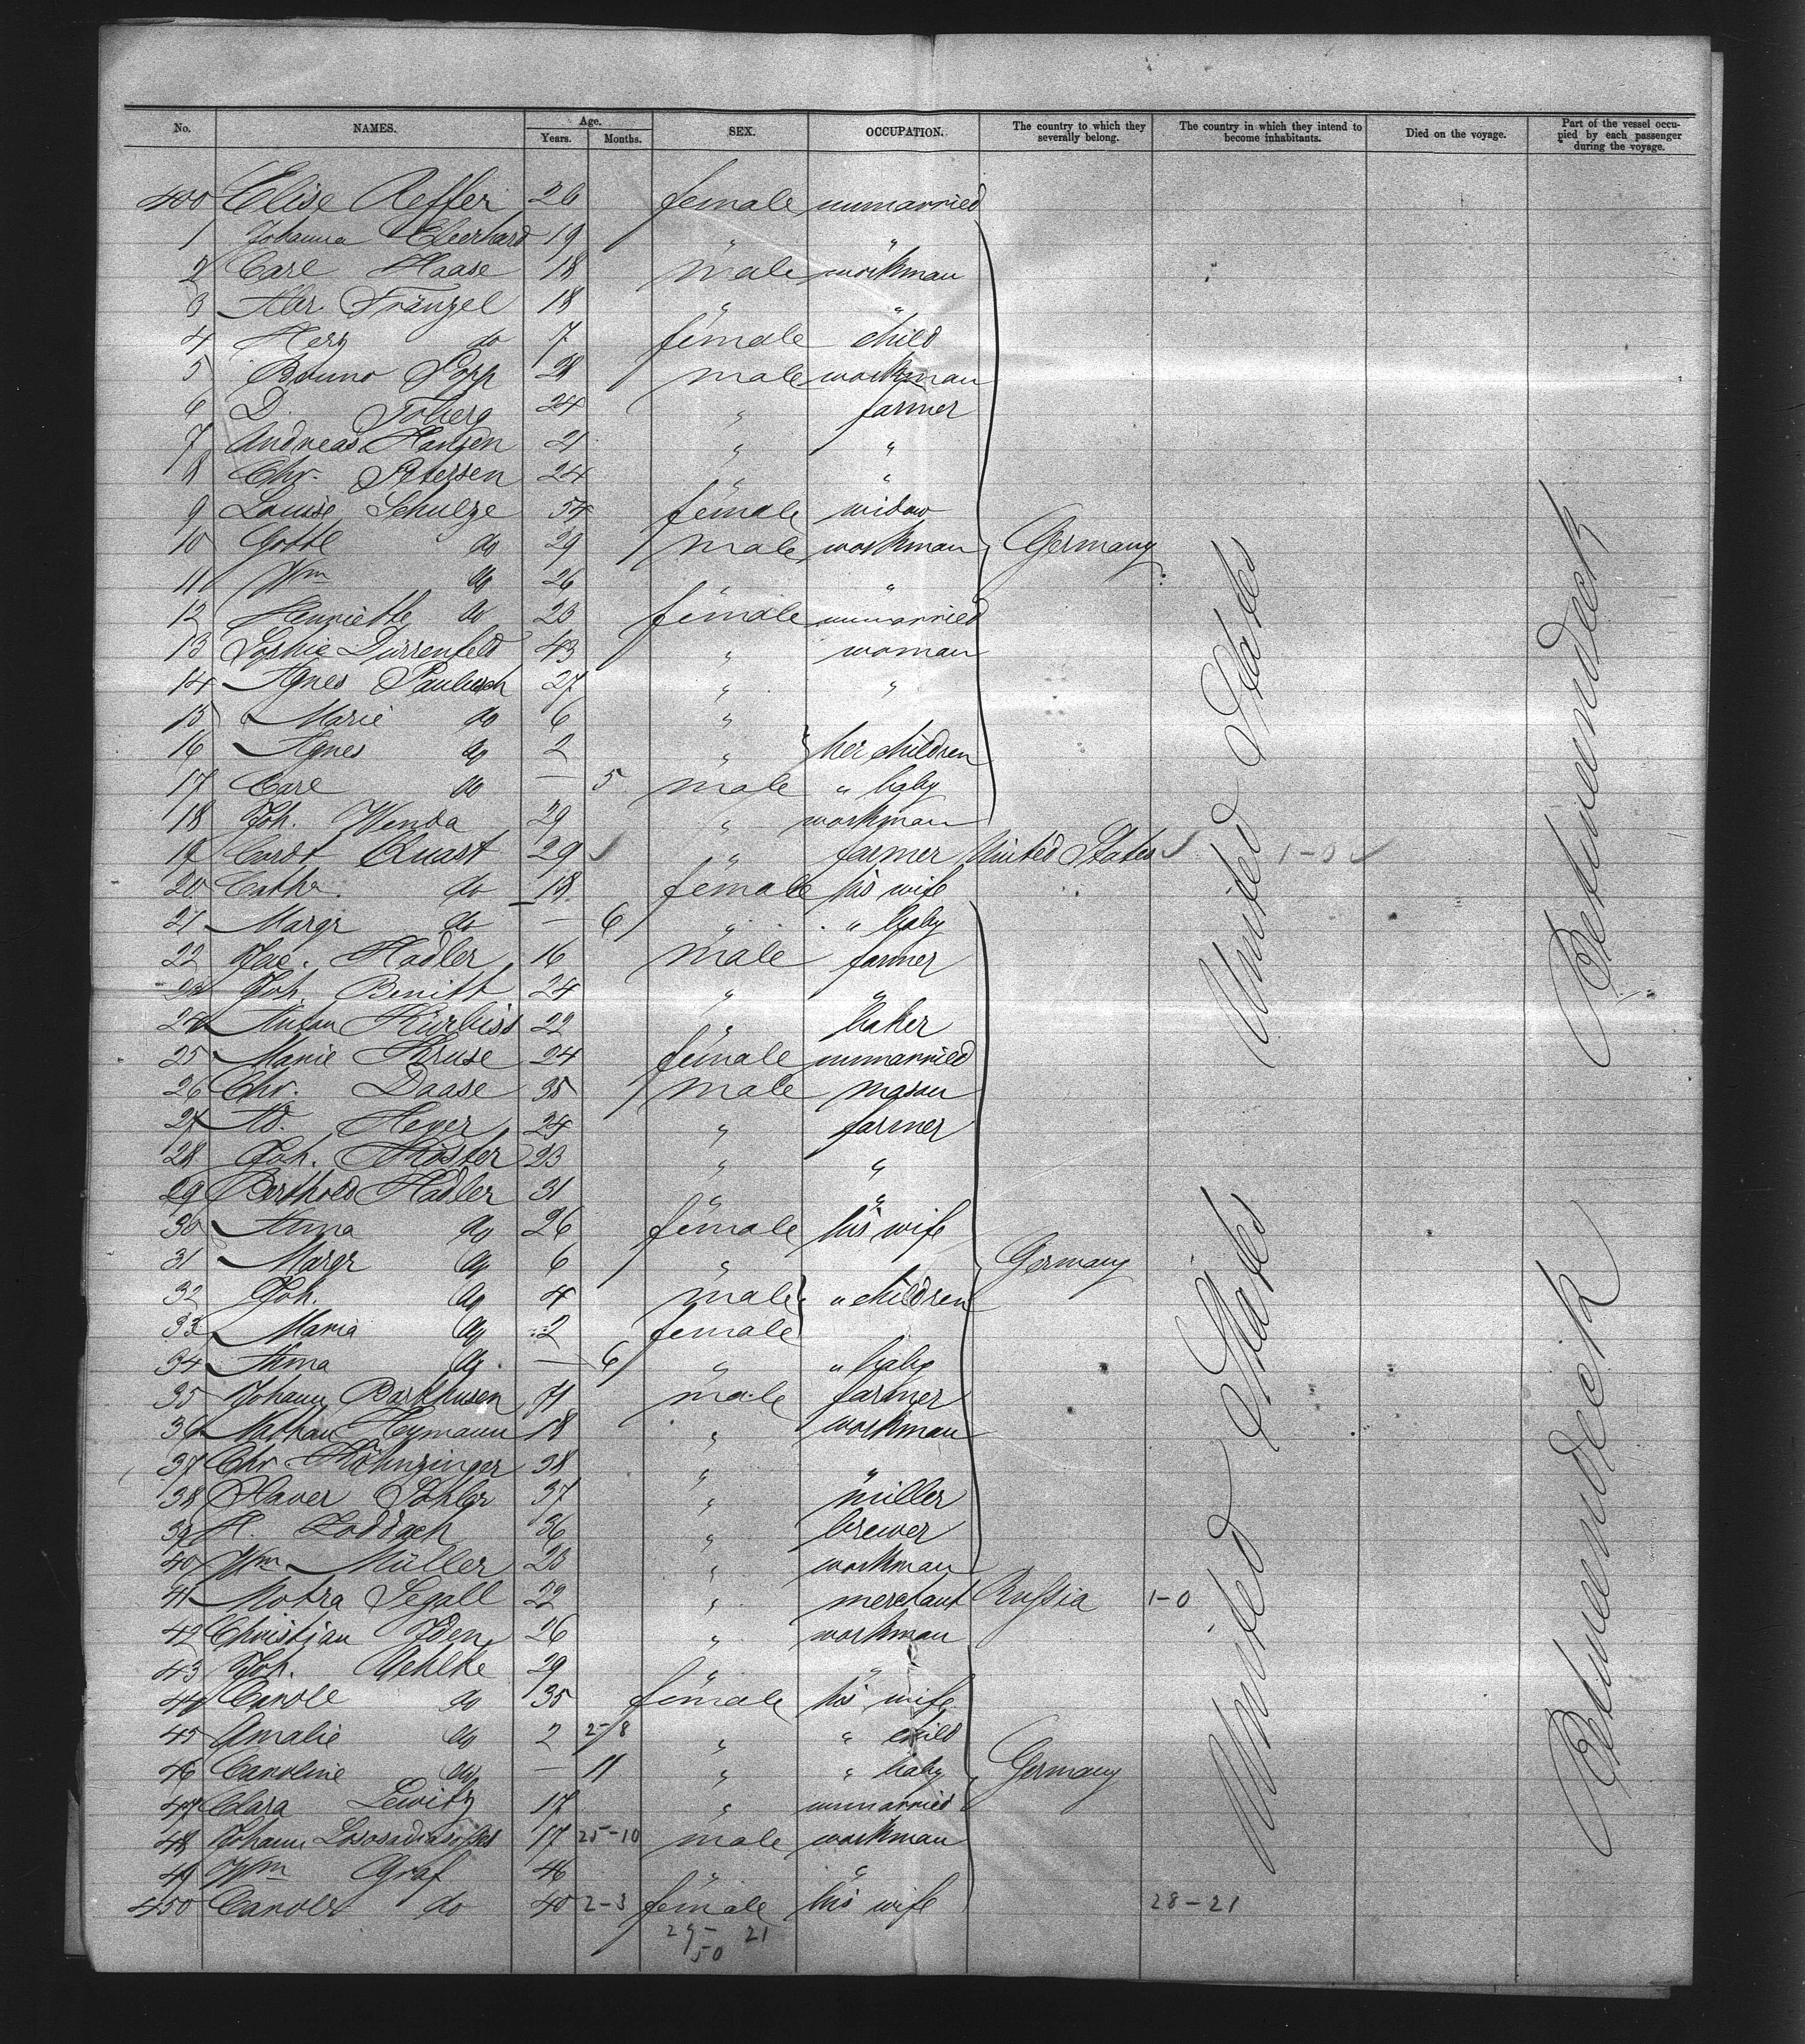 No. NAMES. Age. Years. Months. SEX. OCCUPATION. The country to which they severally belong. The country in which they intend to become inhabitants. Died on the voyage. Part of the vessel occupied by each passenger during the voyage.
400 Elise Aeffer 26 female unmarried
1 Johanna Eberhard 19 " "
2 Carl Haase 18 male workman
3 Alb. Fränzel 18 " "
4 Herz do 7 female child
5 Bruno Popp 28 male workman
6 D. Toberg 24 " farmer
7 Andreas Hansen 21 " "
8 Chr. Petersen 24 " "
9 Louise Schulze 54 female widow
10 Gottl do 29 male workman Germany
11 Wm do 26 " "
12 Henriette do 23 female unmarried
13 Sophie Dürrenfeld 43 " woman
14 Agnes Paulisch 27 " "
15 Marie do 6 "
16 Agnes do 2 " her children
17 Carl do — 5 male " baby
18 Joh. Wenda 29 " workman
19 Cordt Quast 29 " farmer United States 1-0
20 Cathr. do 18 female his wife
21 Margr do — 6 " " baby
22 Jac. Hadler 16 male farmer
23 Joh. Benitt 24 " "
24 Anton Kürbiss 22 " baker
25 Marie Kruse 24 female unmarried
26 Chr. Daase 35 male mason
27 Ad. Heyer 24 " farmer
28 Joh. Köster 23 " "
29 Berthold Hadler 31 " "
30 Anna do 26 female his wife
31 Margr do 6 " Germany
32 Joh. do 4 male " children
33 Maria do 2 female
34 Anna do — 6 " " baby
35 Johann Barkhusen 71 male farmer
36 Nathan Heymann 18 " workman
37 Chr. 38 " "
38 Xaver 37 " miller
39 H. Loddach 36 " brewer
40 Wm Müller 23 " workman
41 Segall 22 " merchant Russia 1-0
42 Christian Iden 26 " workman
43 Joh. Uehlke 29 " "
44 Carole do 35 female his wife
45 Amalie do 2 2-/8 " " child
46 Caroline do — 11 " " baby Germany
47 Clara Lewitz 17 " unmarried
48 Johann 17 25-10 male workman
49 Wm Graf 46 " "
450 Carole do 40 2-3 female his wife 28-21
29- 21
50
United States
United States
United States
Betweendeck
Betweendeck